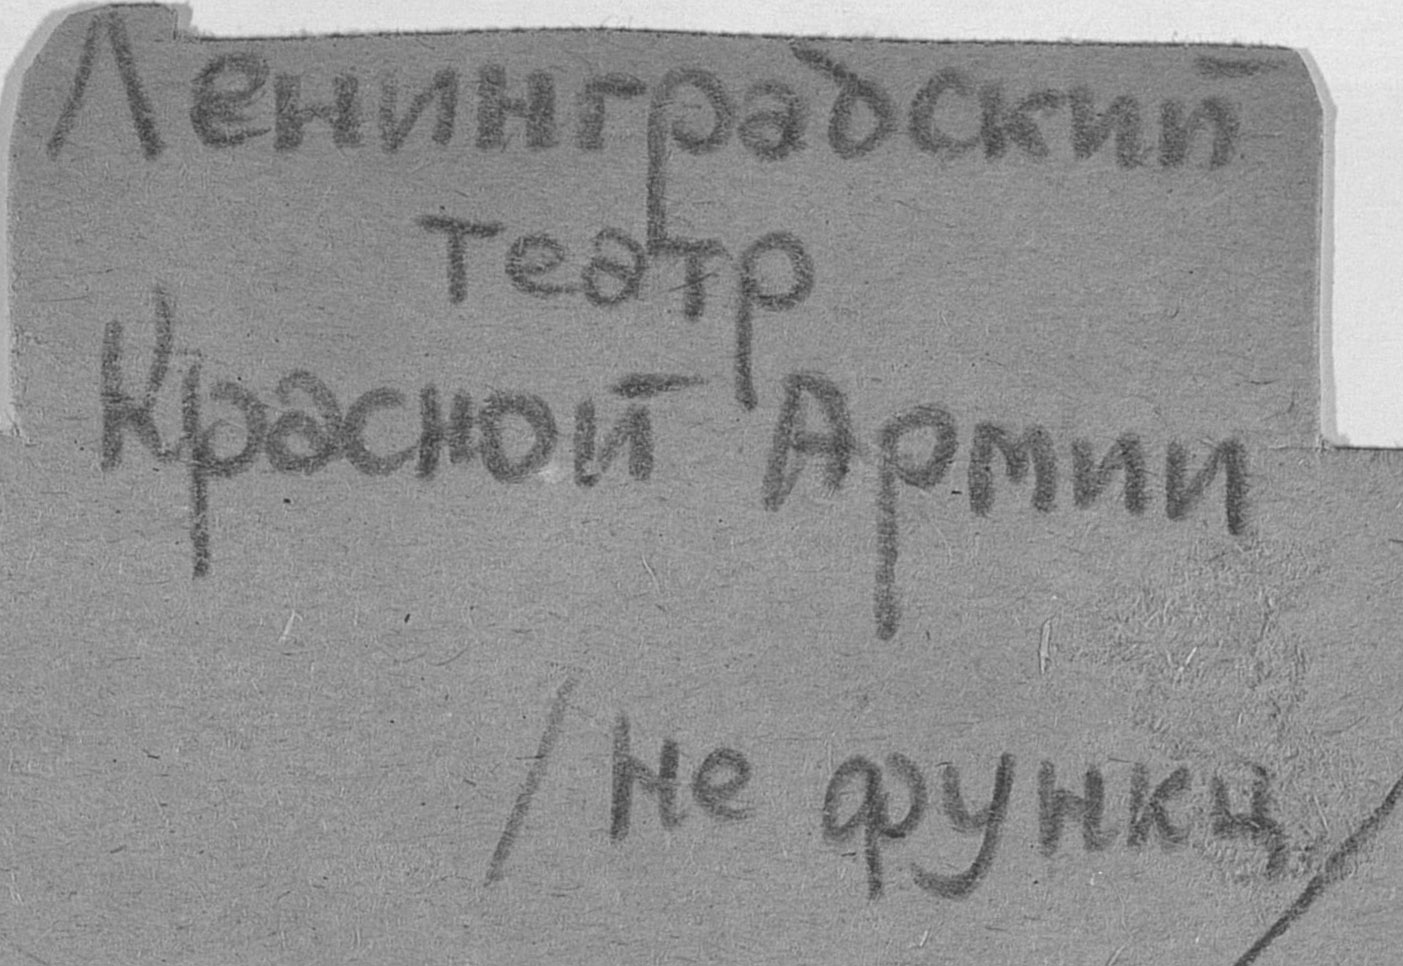 Ленинградский
театр
Красной Армии
/не функц/